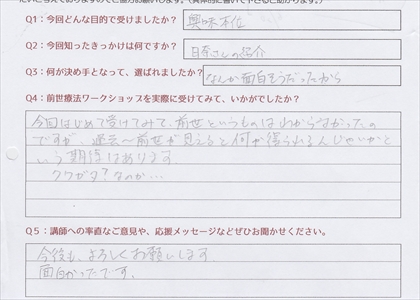 Q1：今回どんな目的で受けましたか？ 興味本位
Q2：今回知ったきっかけは何ですか？ 日奈さんの紹介
Q3：何が決め手となって、選ばれましたか？ なんか面白そうだったから
Q4：前世療法ワークショップを実際に受けてみて、いかがでしたか？
今回はじめて受けてみて、前世というものはわからなかったの
ですが、過去〜前世が見えると何か得られるんじゃないかと
いう期待はあります
クワガタ？なのか…
Q5：講師への率直なご意見や、応援メッセージなどぜひお聞かせください。
今後も、よろしくお願いします
面白かったです。